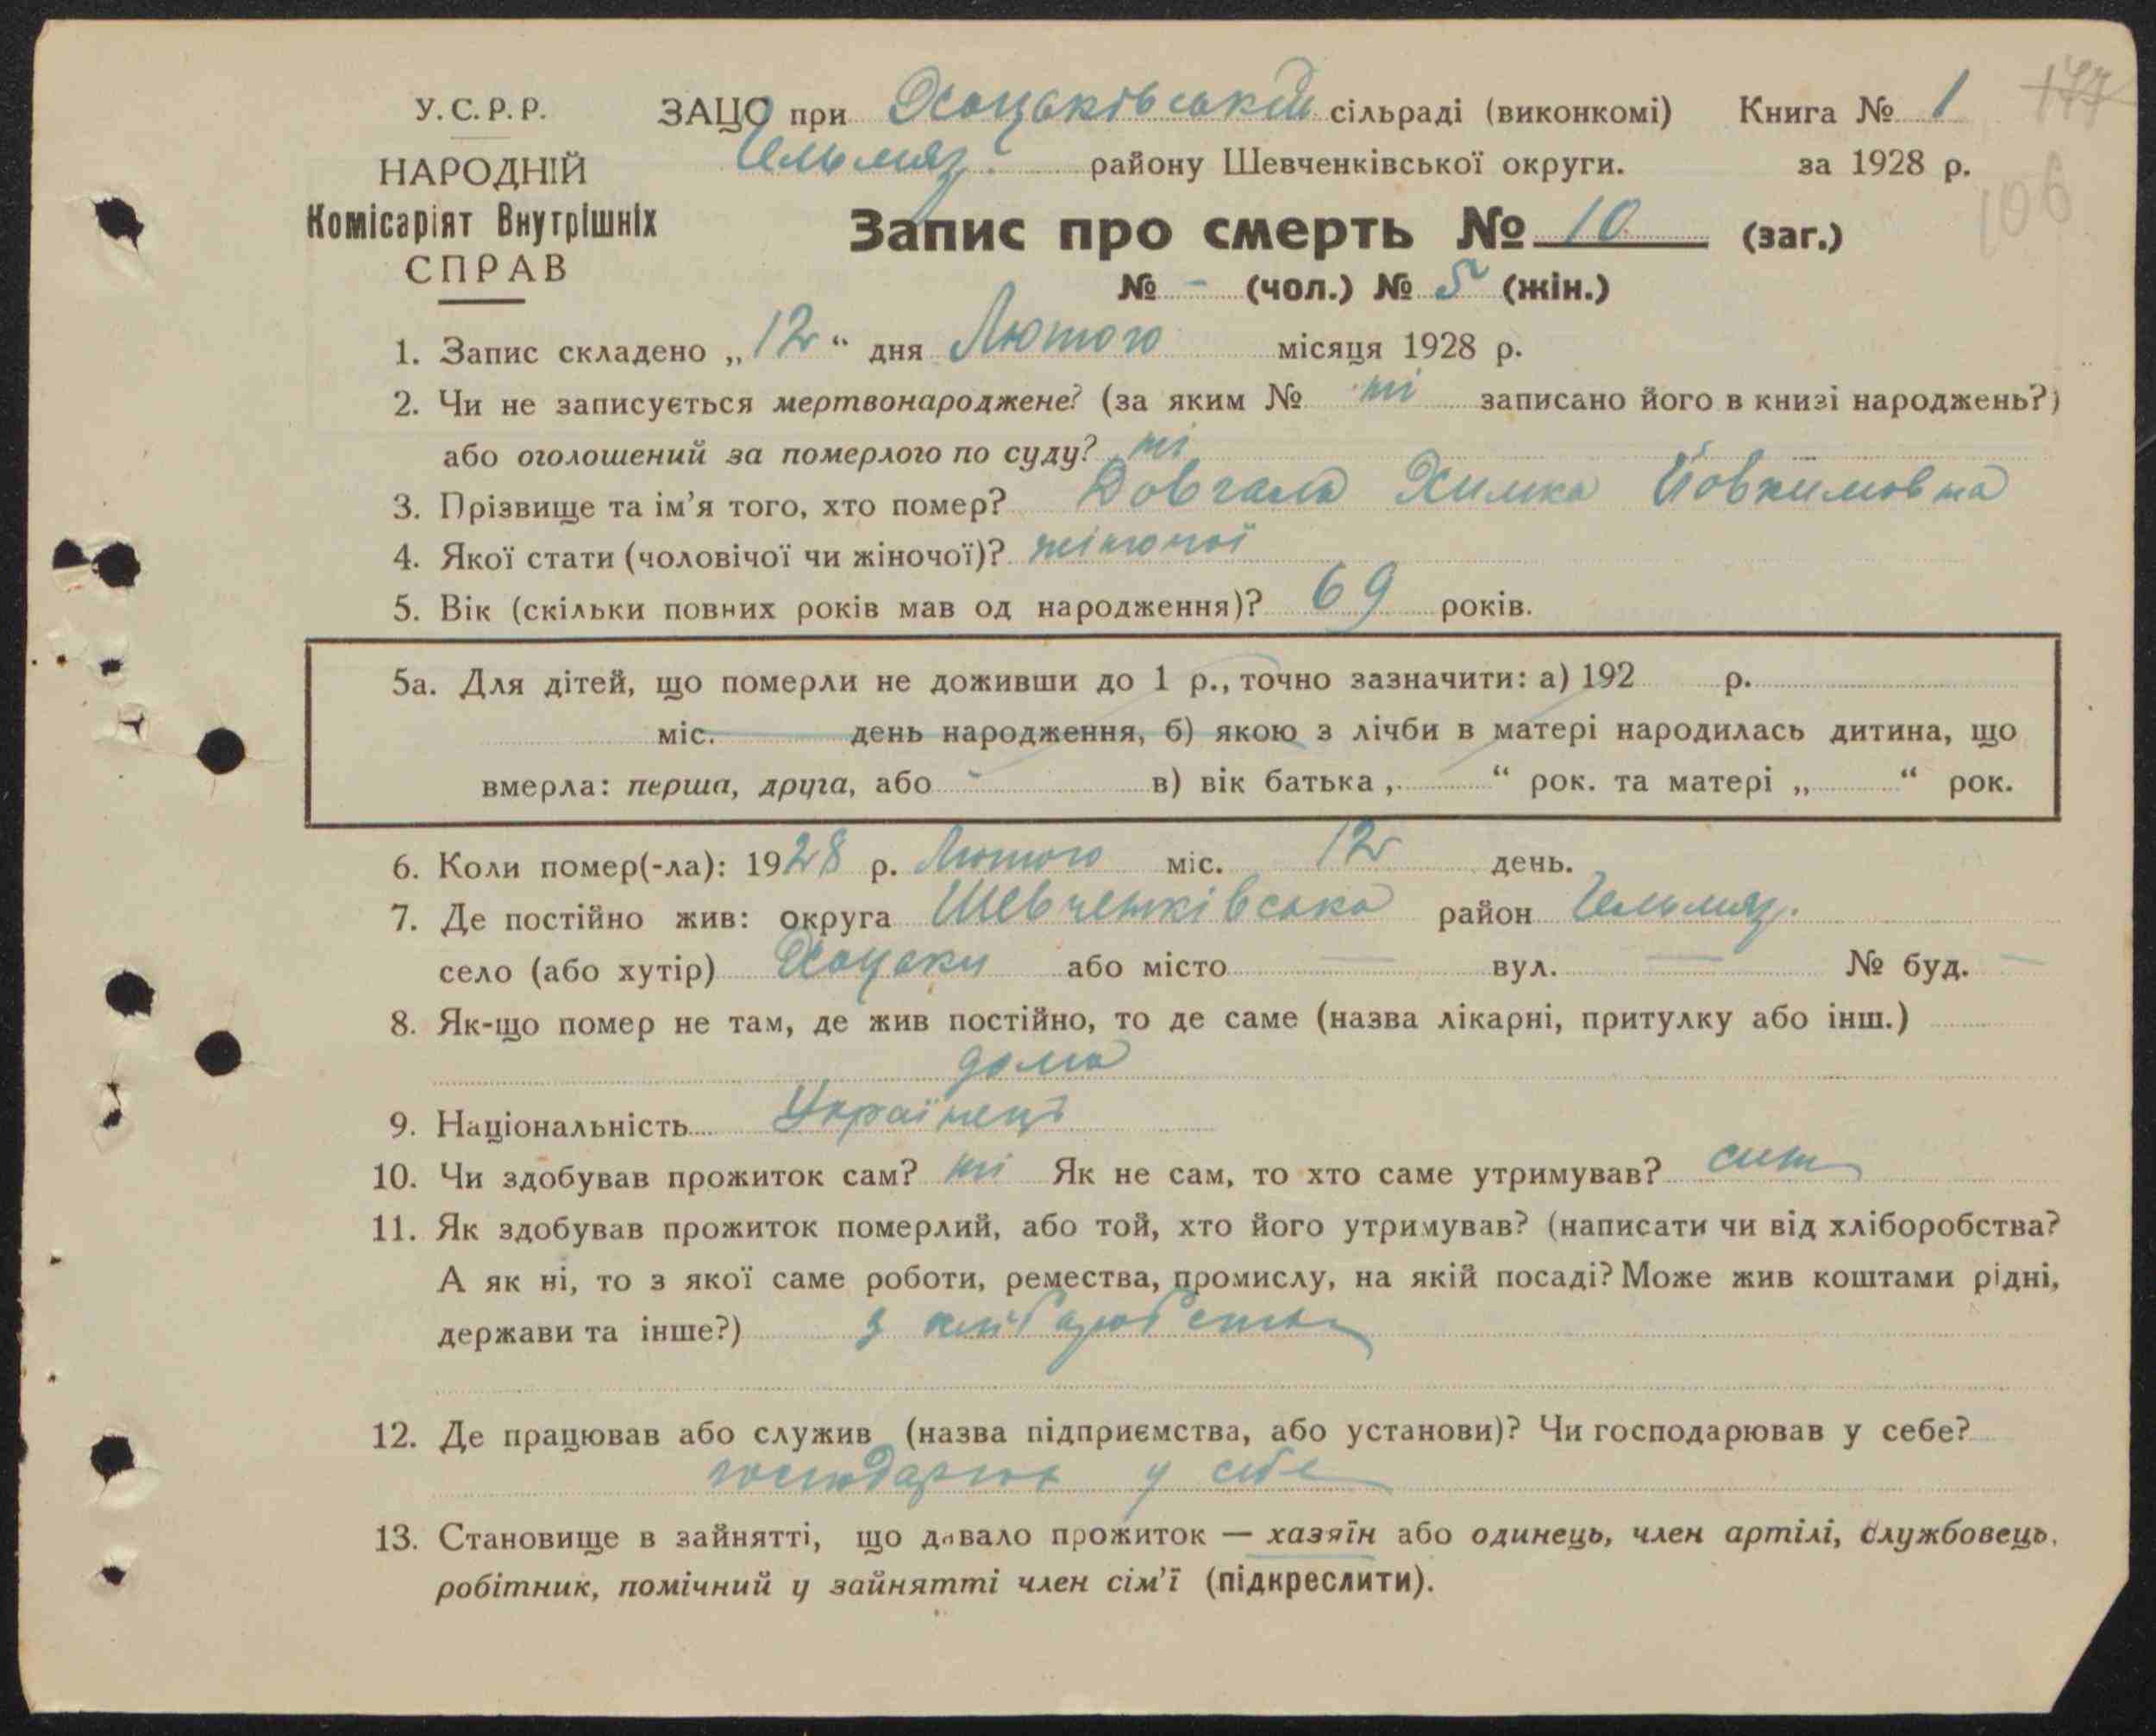 177
У.С.Р.Р. ЗАЦС при Хоцьківській сільраді (виконкомі) Книга № 1
Гельмяз. району Шевченківської округи. за 1928 р.
106
НАРОДНІЙ
Комісаріят Внутрішніх
СПРАВ
Запис про смерть № 10 (заг.)
№ - (чол.) № 5 (жін.)
1. Запис складено „12“ дня Лютого місяця 1928 р.
2. Чи не записується мертвонароджене? (за яким № ні записано його в книзі народжень?)
або оголошений за померлого по суду? ні
3. Прізвище та ім’я того, хто помер? Довгаль Химка Йовхимовна
4. Якої стати (чоловічої чи жіночої)? жіночої
5. Вік (скільки повних років мав од народження)? 69 років.
5а. Для дітей, що померли не доживши до 1 р., точно зазначити: а) 192 р.
міс. день народження, б) якою з лічби в матері народилась дитина, що
вмерла: перша, друга, або в) вік батька „ “ рок. та матері „ “ рок.
6. Коли помер(-ла): 1928 р. Лютого міс. 12 день.
7. Де постійно жив: округа Шевченківська район Гельмяз.
село (або хутір) Хоцьки або місто — вул. — № буд. —
8. Як-що помер не там, де жив постійно, то де саме (назва лікарні, притулку або інш.)
дома
9. Національність Українець
10. Чи здобував прожиток сам? ні Як не сам, то хто саме утримував? син
11. Як здобував прожиток померлий, або той, хто його утримував? (написати чи від хліборобства?
А як ні, то з якої саме роботи, ремества, промислу, на якій посаді? Може жив коштами рідні,
держави та інше?) з хліборобства
12. Де працював або служив (назва підприємства, або установи)? Чи господарював у себе?
господарює у себе
13. Становище в зайнятті, що давало прожиток — хазяїн або одинець, член артілі, службовець,
робітник, помічний у зайнятті член сім’ї (підкреслити).